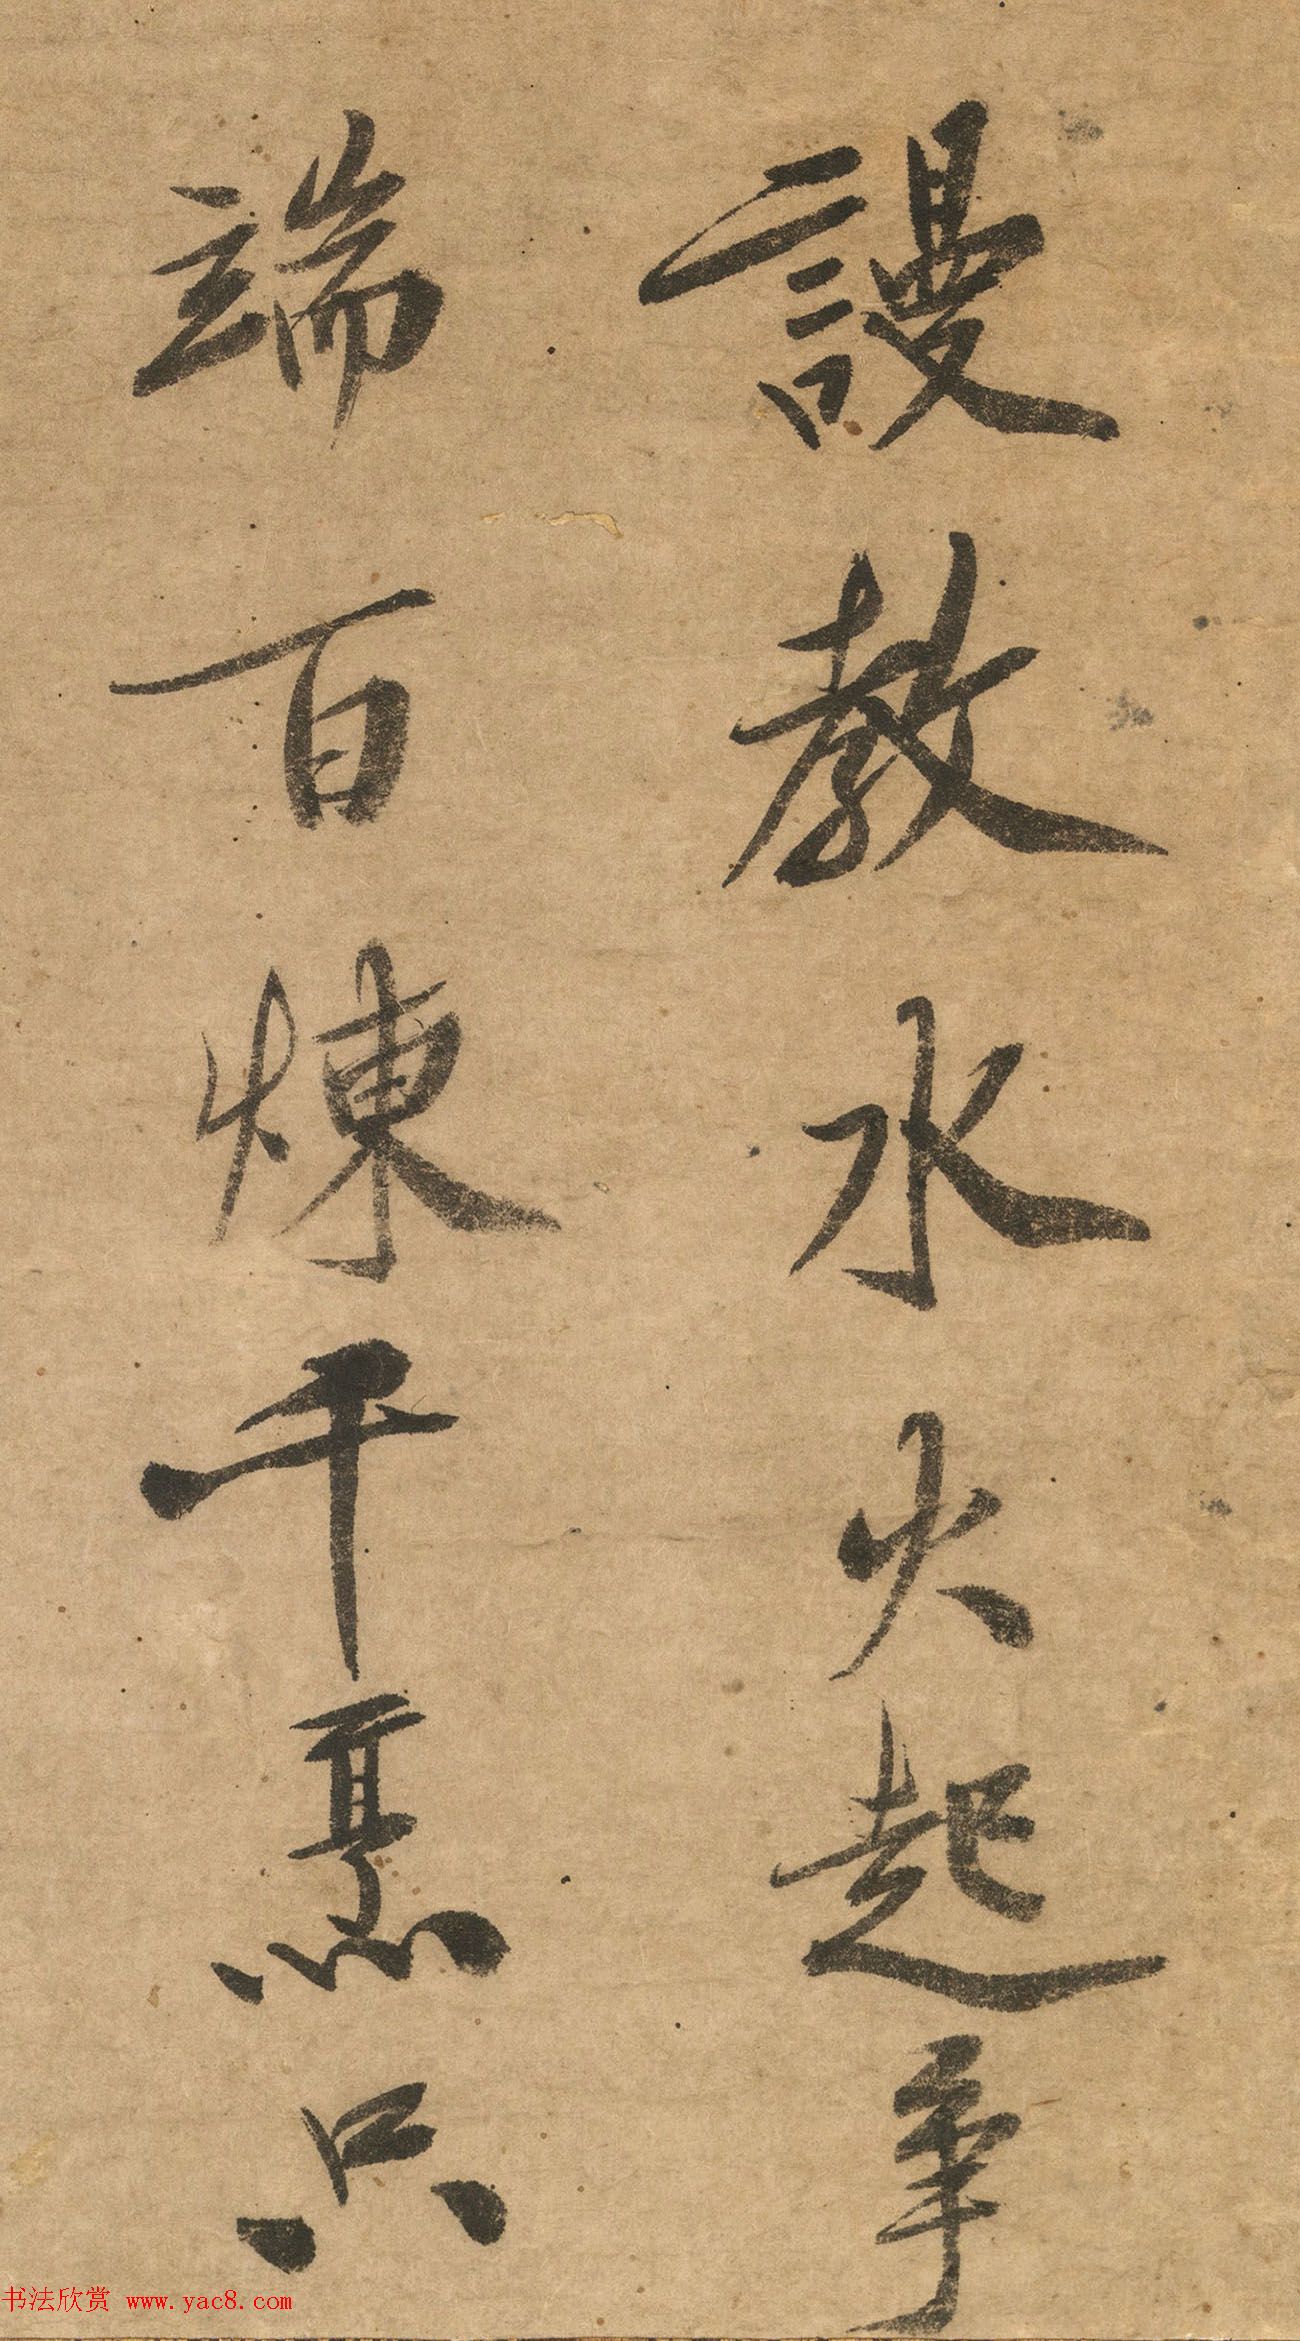 謾教水火起爭
端百煉千烹只
书法欣赏 www.yac8.com